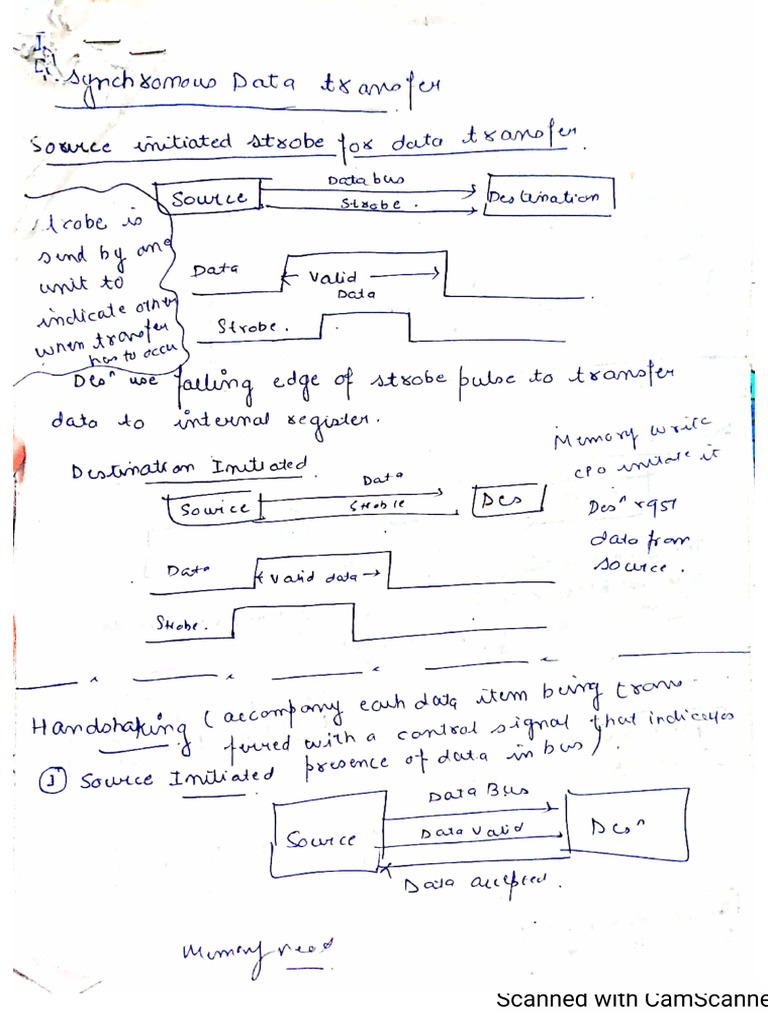 Synchronous Data transfer
Source initiated strobe for data transfer.
Source
Data bus
Strobe.
Destination
strobe is
send by one
unit to
indicate other
when transfer
has to occu
Data
Valid
Data
Strobe.
Desⁿ use falling edge of strobe pulse to transfer
data to internal register.
Destination Initiated.
Source
Data
Stroble
Des
Memory write
CPO initiate it
Desⁿ rqst
data from
source.
Data
Valid data
Strobe.
Handshaking (accompany each data item being trans-
ferred with a control signal that indicates
presence of data in bus).
① Source Initiated
Source
Data Bus
Data Valid
Desⁿ
Data accepted.
Memory read
Scanned with CamScanne